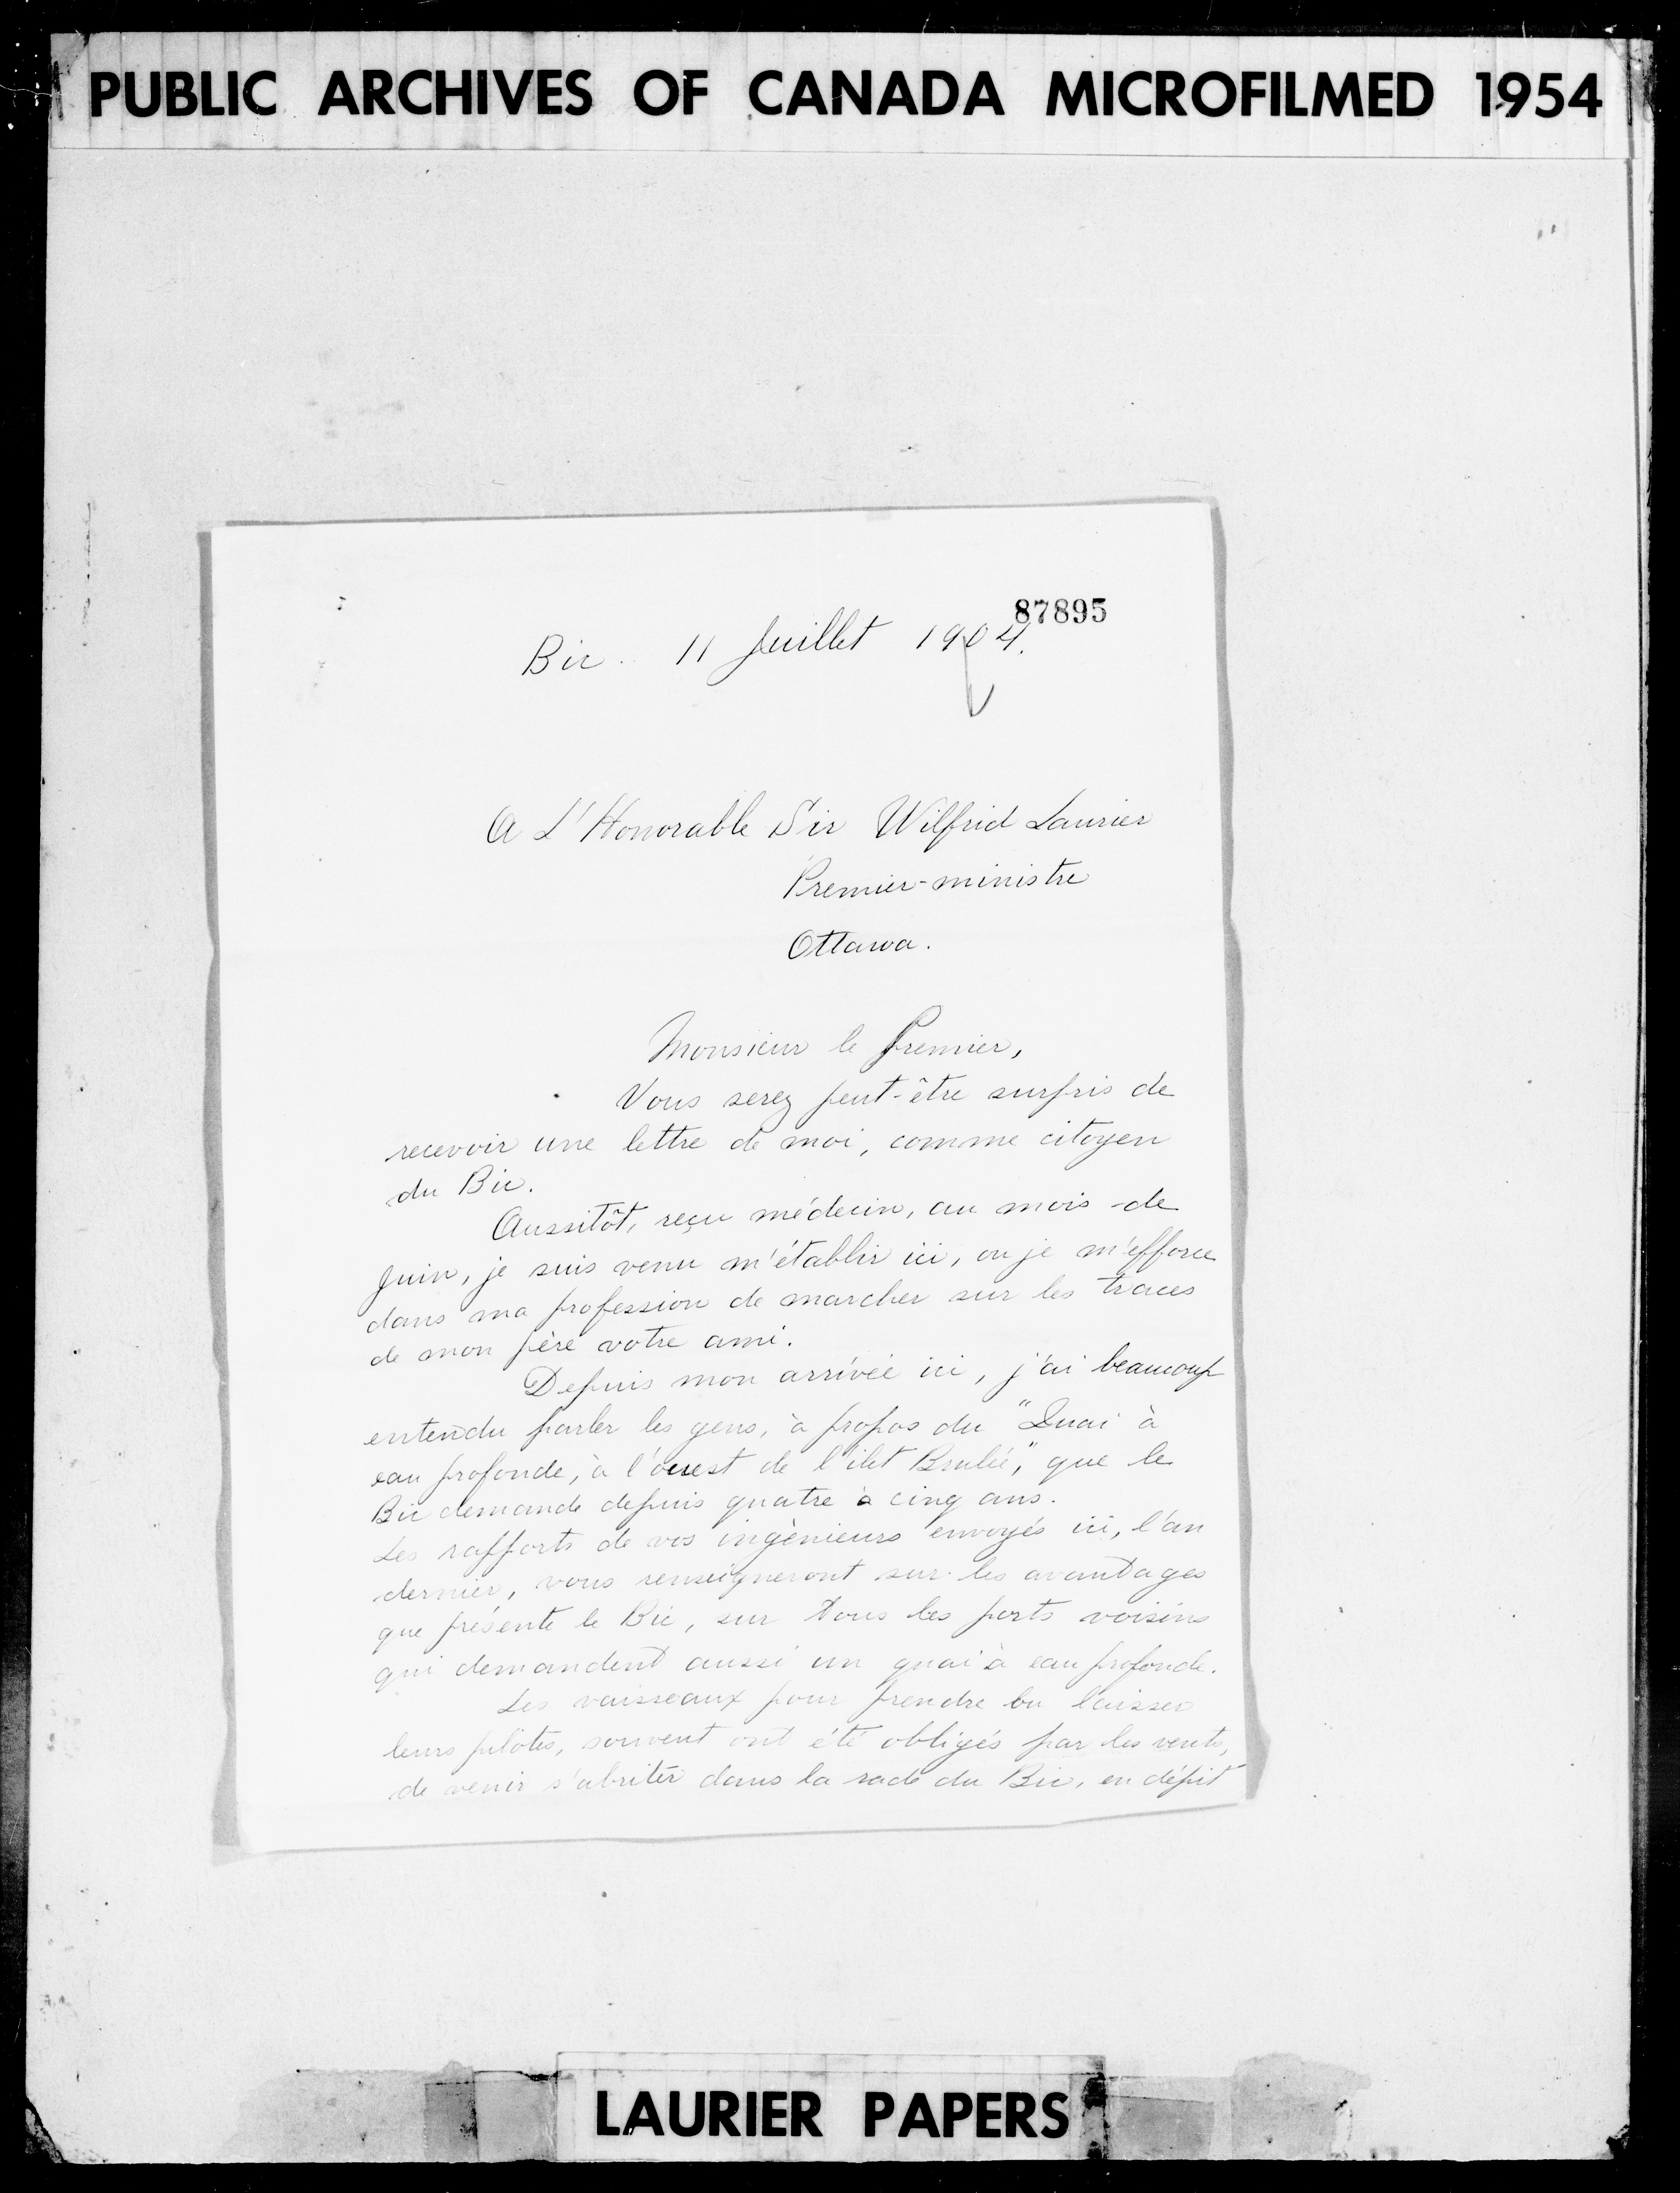 PUBLIC ARCHIVES OF CANADA MICROFILMED 1954
87895
Bic. 11 Juillet 1904.
A L'Honorable Sir Wilfrid Laurier
Premier-ministre
Ottawa.
Monsieur le Premier,
Vous serez peut-être surpris de
recevoir une lettre de moi, comme citoyen
du Bic.
Aussitôt, reçu médecin, au mois de
Juin, je suis venu m'établir ici, ou je m'efforce
dans ma profession de marcher sur les traces
de mon père votre ami.
Depuis mon arrivée ici, j'ai beaucoup
entendu parler les gens, à propos du "Quai à
eau profonde, à l'ouest de l'ilet Brulé", que le
Bic demande depuis quatre à cinq ans.
Les rapports de vos ingénieurs envoyés ici, l'an
dernier, vous renseigneront sur les avantages
que présente le Bic, sur tous les ports voisins
qui demandent aussi un quai à eau profonde.
Les vaisseaux pour prendre ou laisser
leurs pilotes, souvent ont été obligés par les vents,
de venir s'abriter dans la rade du Bic, en dépit
LAURIER PAPERS